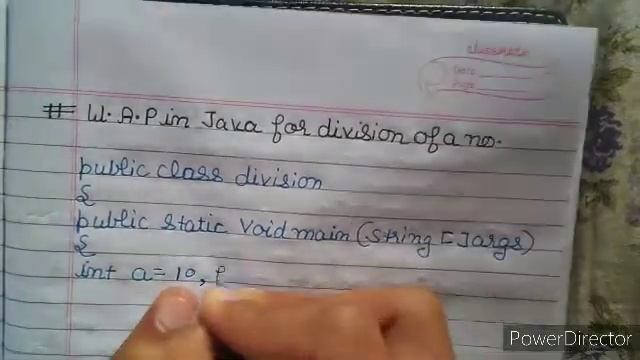 classmate
Date
Page
# W.A.P in Java for division of a no.
public class division
{
public static void main (String [ ] args)
{
int a = 10,
PowerDirector